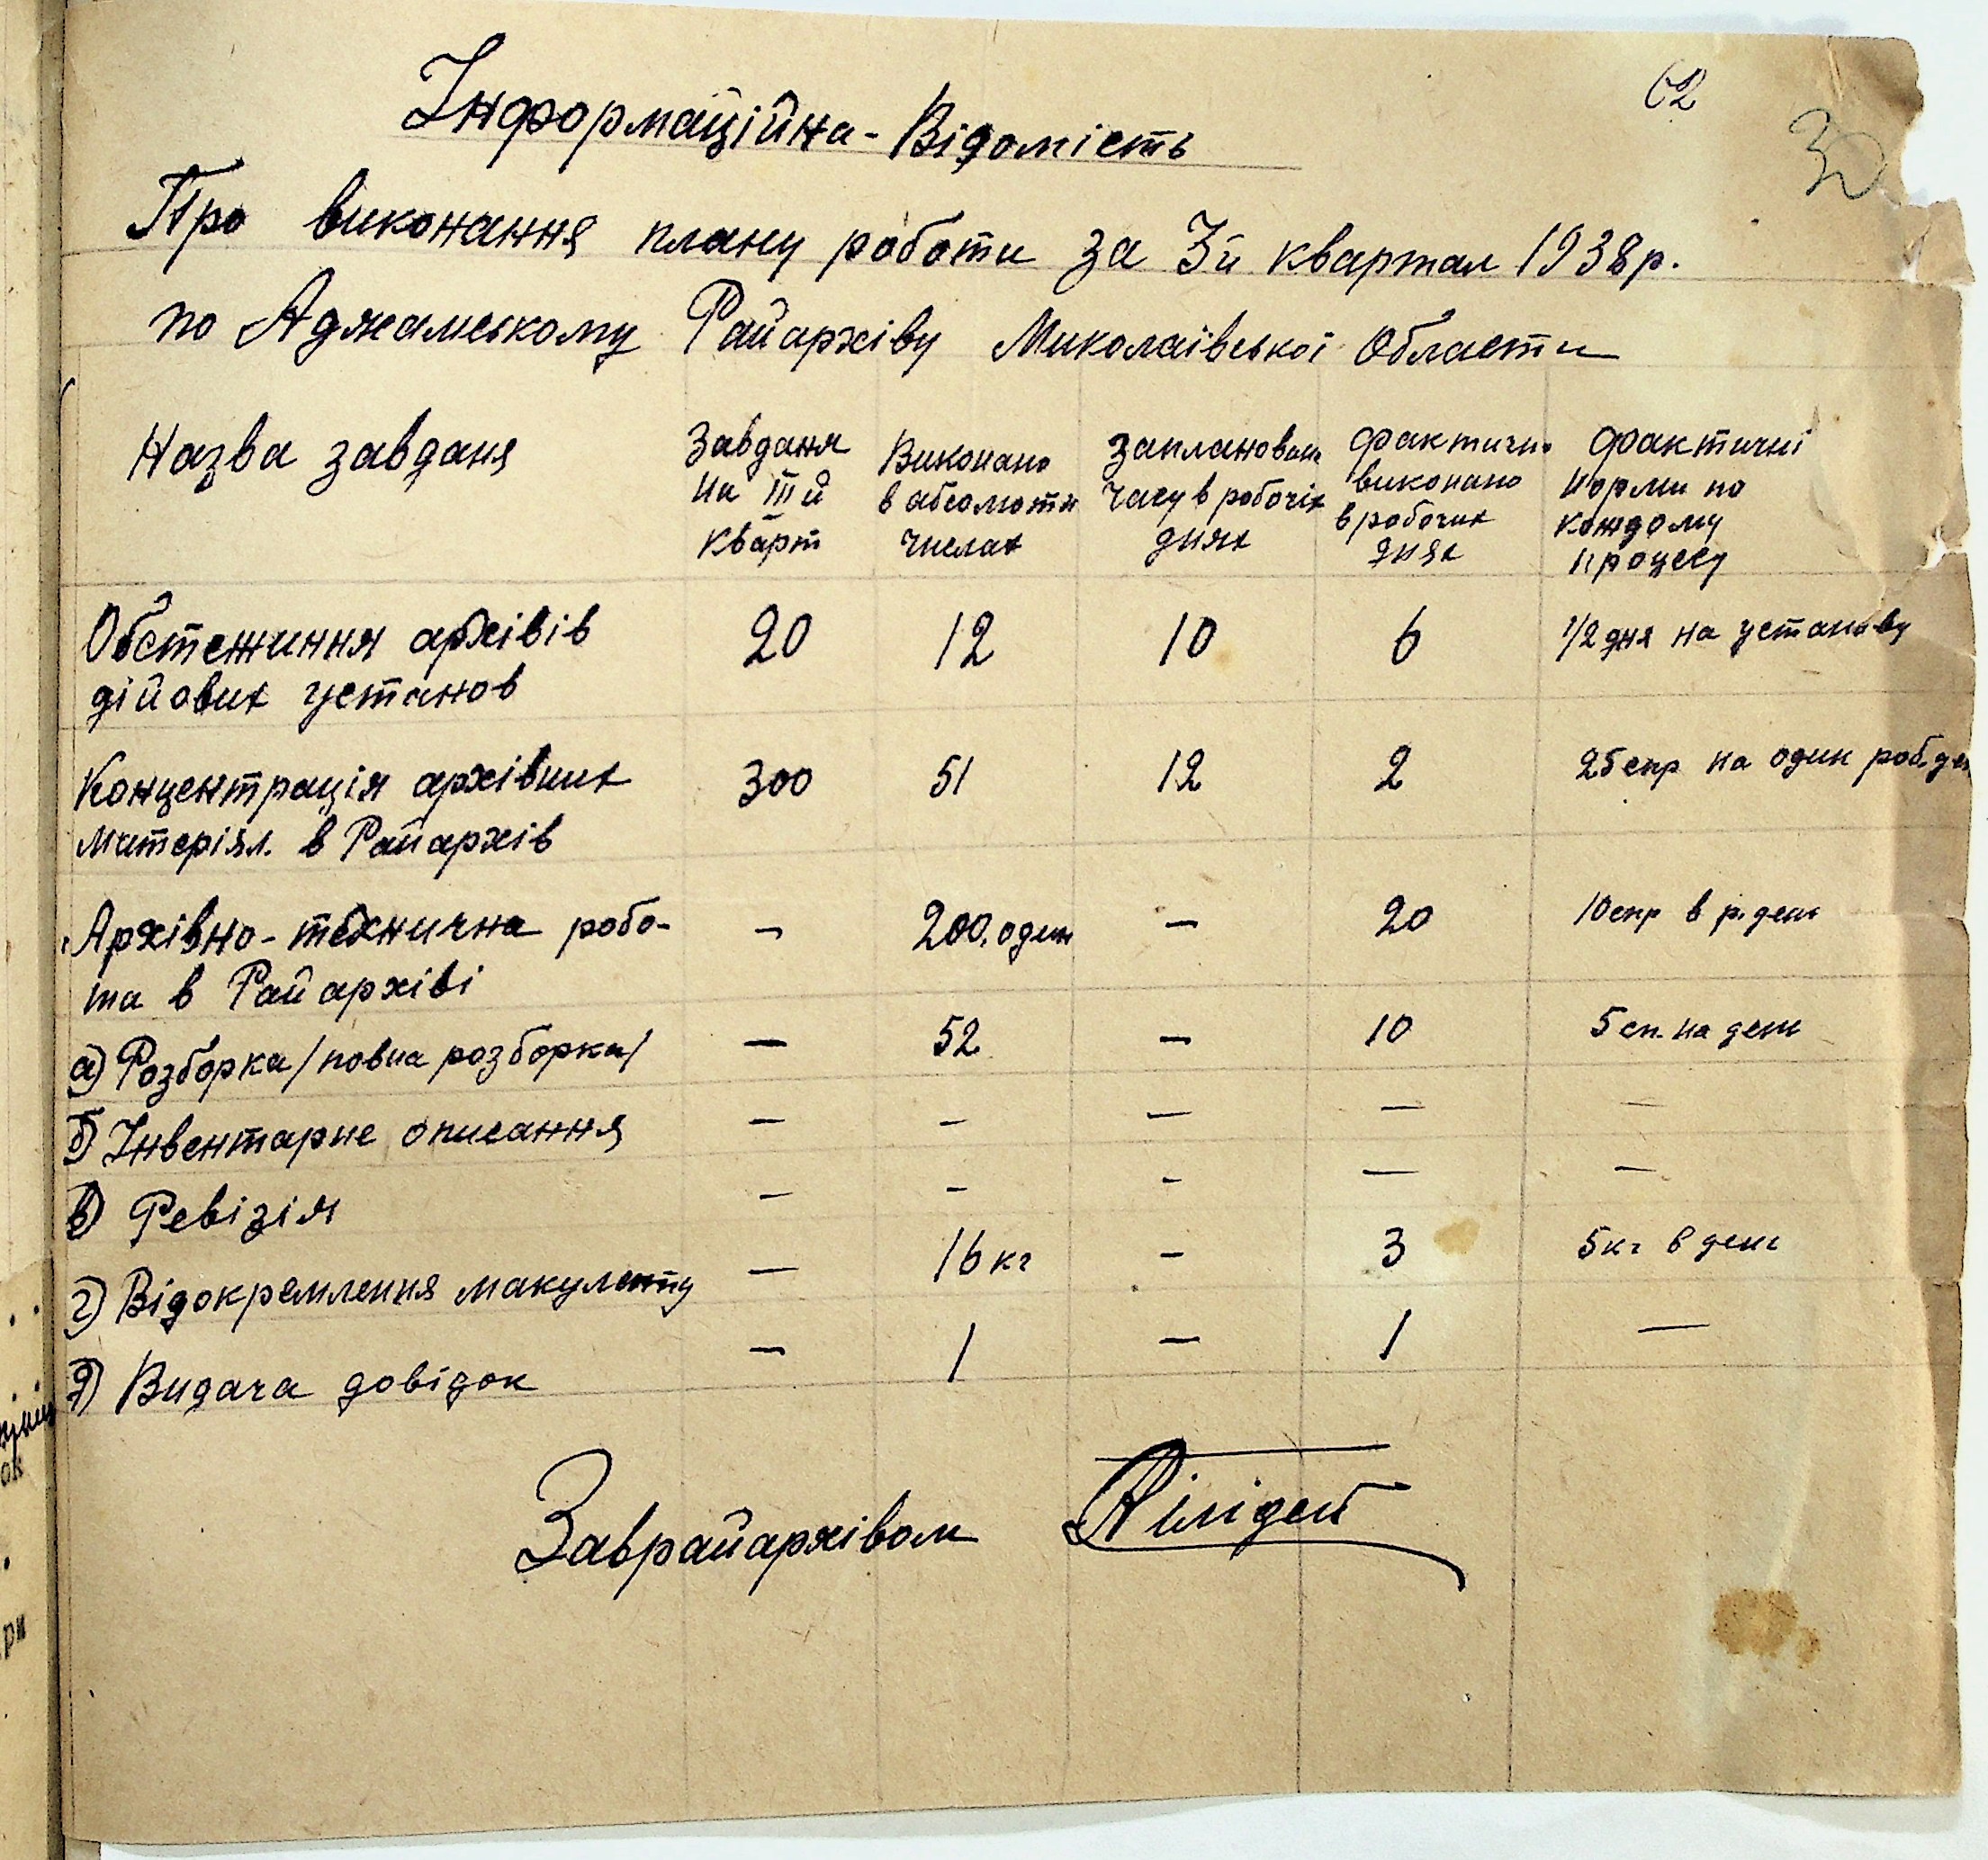 62
30
Інформаційна-Відомість
Про виконання плану роботи за 3й квартал 1938р.
по Аджамському Райархіву Миколаївської Области
Назва завданя
Завданя
на III й
кварт
Виконано
в абсолютн
числах
запланован
часу в робочіх
днях
фактичн.
виконано
в робочих
днях
фактичні
норми по
кождому
процесу
Обстежиння архівів
дійових установ
20
12
10
6
1/2 дня на установу
Концентрація архівних
митеріял. в Райархів
300
51
12
2
25 спр на один роб. ден
Архівно-технична робо-
та в Райархіві
–
200. один
–
20
10 спр в р. день
а) Розборка /повна розборка/
–
52
–
10
5 сп. на день
б) Інвентарне описання
–
–
–
–
–
в) Ревізія
–
–
-
–
–
г) Відокремлення макуленту
–
16 кг
–
3
5 кг в день
д) Видача довідок
–
1
–
1
–
Заврайархівом